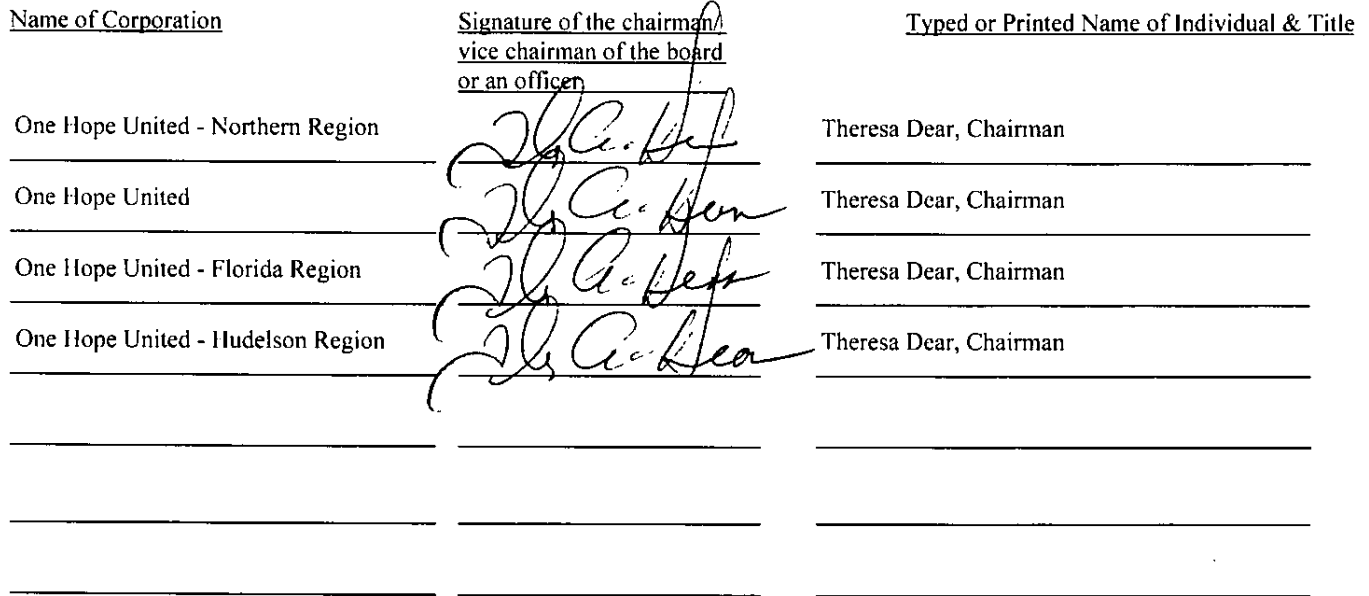 Name of Corporation
Signature of the chairman/
vice chairman of the board
or an officer
Typed or Printed Name of Individual & Title
One Hope United - Northern Region
Theresa Dear, Chairman
One Hope United
Theresa Dear, Chairman
One Hope United - Florida Region
Theresa Dear, Chairman
One Hope United - Hudelson Region
Theresa Dear, Chairman